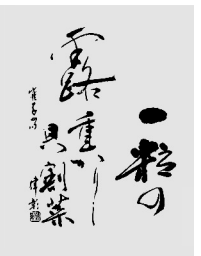 一粒の
露重かりし
貝割菜